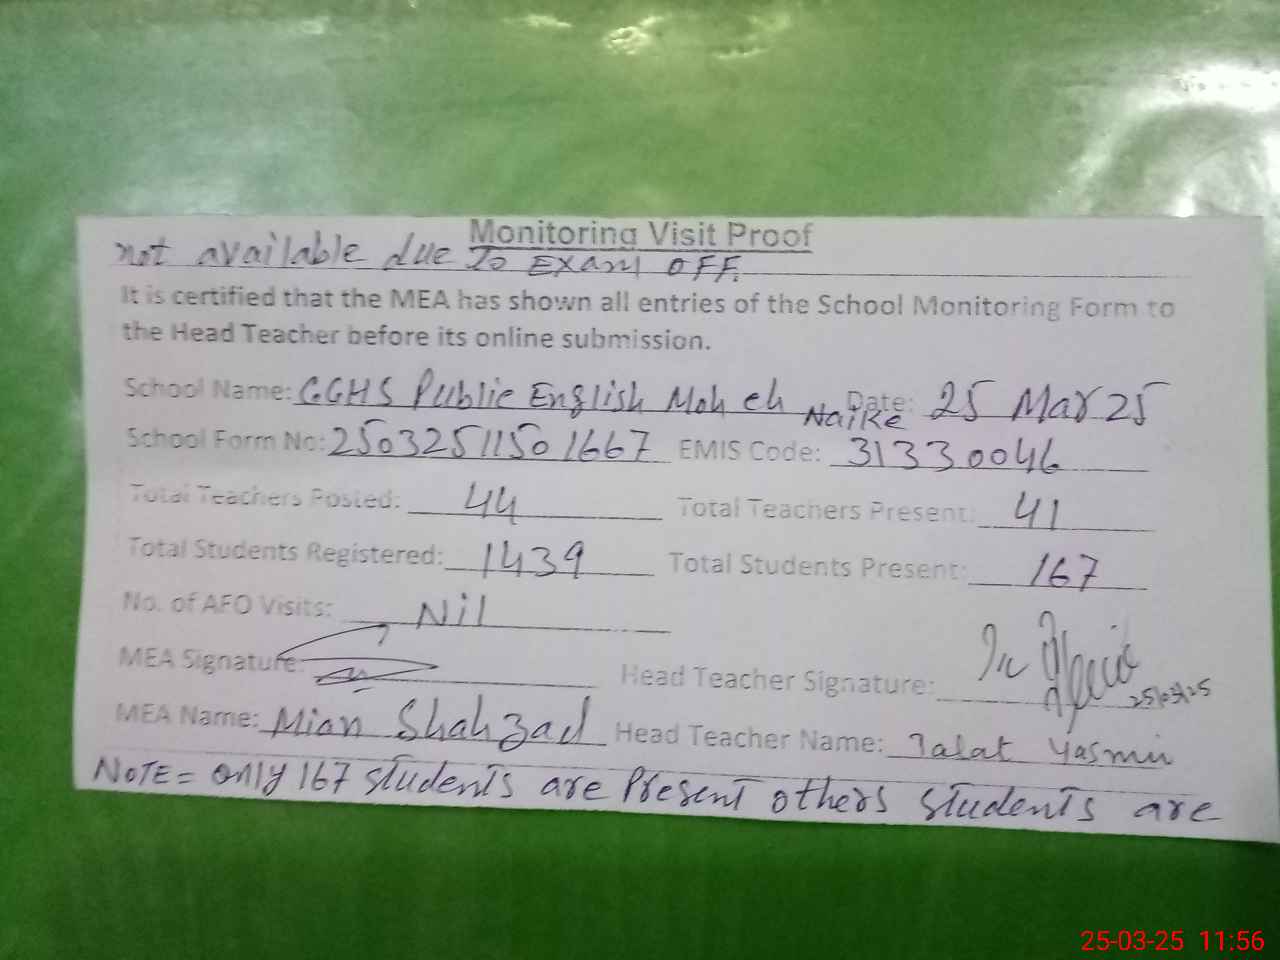 Monitoring Visit Proof
not available due To EXam OFF.
It is certified that the MEA has shown all entries of the School Monitoring Form to
the Head Teacher before its online submission.
School Name: GGHS Public English Moh eh Naike Date: 25 Mar 25
School Form No: 25032511501667 EMIS Code: 31330046
Total Teachers Posted: 44 Total Teachers Present: 41
Total Students Registered: 1439 Total Students Present: 167
No. of AFO Visits: Nil
MEA Signature: Head Teacher Signature: 25/03/25
MEA Name: Mian Shahzad Head Teacher Name: Talat Yasmin
NOTE = only 167 students are Present others students are
25-03-25 11:56